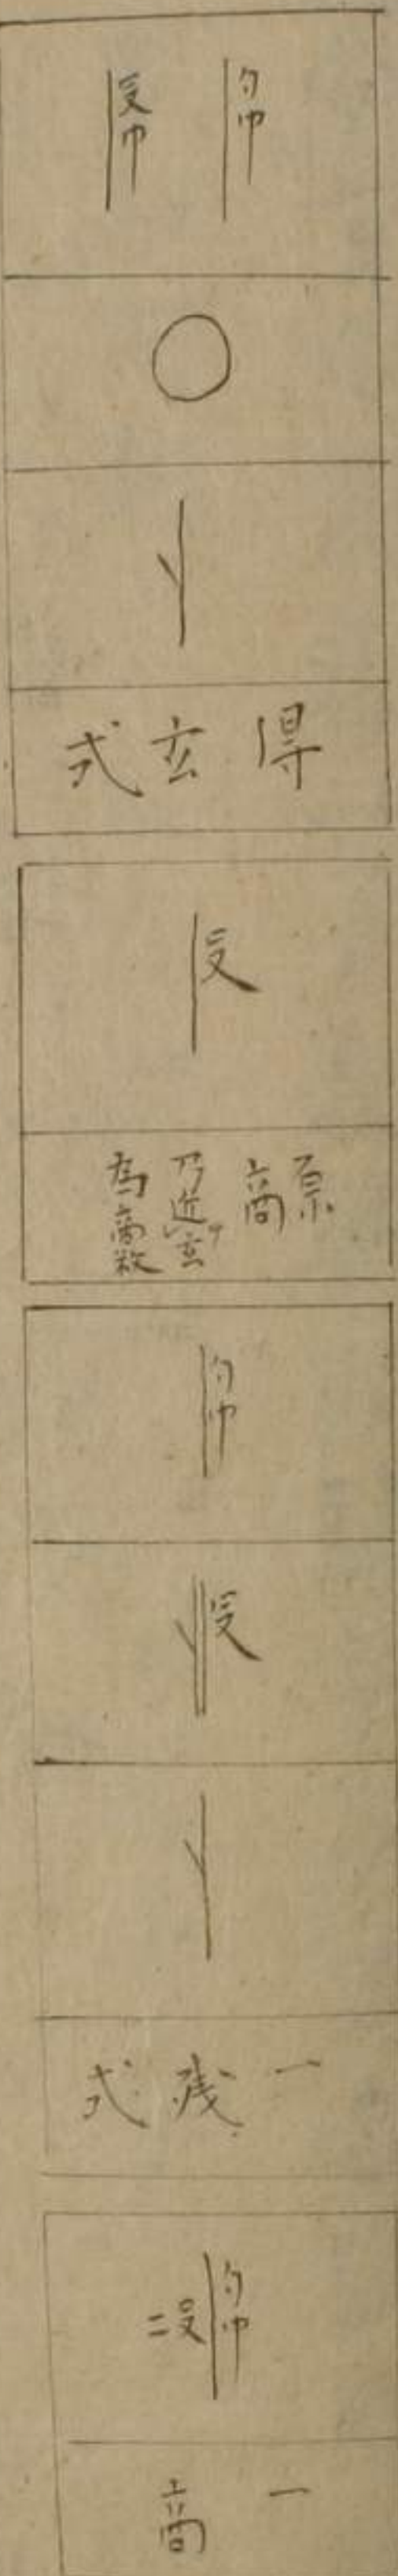 勾巾
殳巾
○
得玄式
殳
原商
乃近玄ヲ
為商数
勾巾
殳
一残式
勾巾
二殳
一商